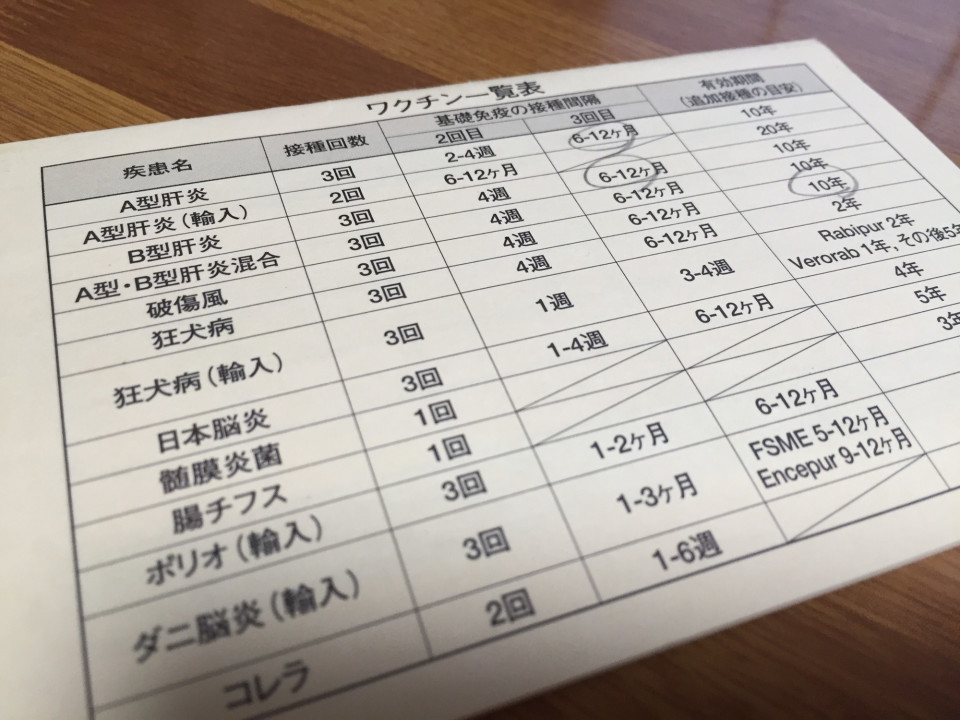 ワクチン一覧表
疾患名 接種回数 基礎免疫の接種間隔 有効期間
2回目 3回目 (追加接種の目安)
A型肝炎 3回 2-4週 6-12ヶ月 10年
A型肝炎(輸入) 2回 6-12ヶ月 20年
B型肝炎 3回 4週 6-12ヶ月 10年
A型・B型肝炎混合 3回 4週 6-12ヶ月 10年
破傷風 3回 4週 6-12ヶ月 10年
狂犬病 3回 4週 6-12ヶ月 2年
狂犬病(輸入) 3回 1週 3-4週 Rabipur 2年
Verorab 1年,その後5年
日本脳炎 3回 1-4週 6-12ヶ月 4年
髄膜炎菌 1回 5年
腸チフス 1回 3年
ポリオ(輸入) 3回 1-2ヶ月 6-12ヶ月
ダニ脳炎(輸入) 3回 1-3ヶ月 FSME 5-12ヶ月
Encepur 9-12ヶ月
コレラ 2回 1-6週